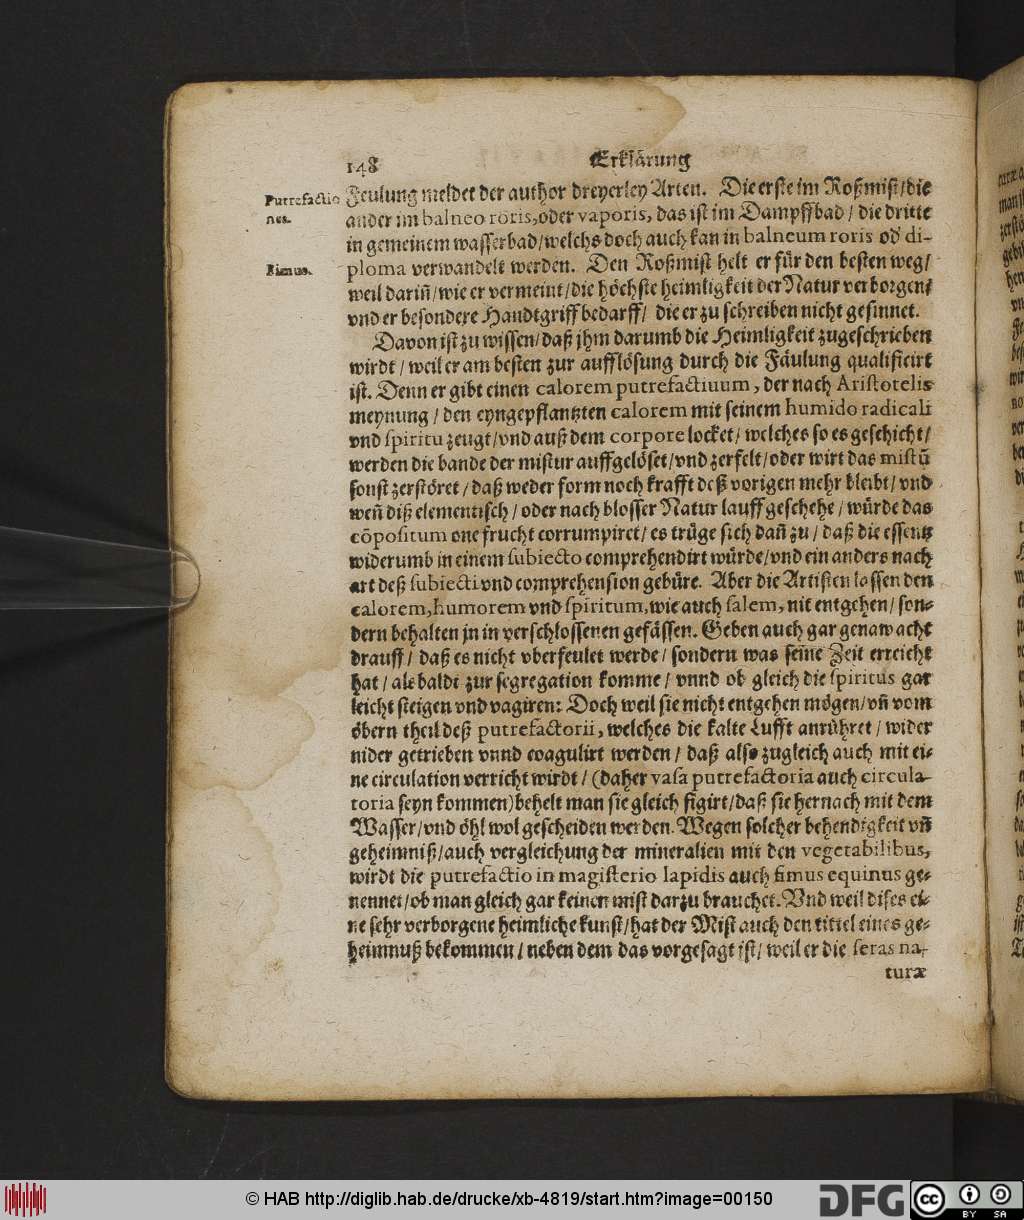 148 Erklärung
Putrefactio
nes.
Feulung meldet der author dreyerley Arten. Die erste im Roßmist/die
ander im balneo roris, oder vaporis, das ist im Dampffbad / die dritte
in gemeinem wasserbad/welchs doch auch kan in balneum roris od' di-
Fimus.
ploma verwandelt werden. Den Roßmist helt er für den besten weg/
weil dariñ/wie er vermeint/die höchste heimligkeit der Natur verborgen/
vnd er besondere Handtgriff bedarff/ die er zu schreiben nicht gesinnet.
Davon ist zu wissen/daß jhm darumb die Heimligkeit zugeschrieben
wirdt / weil er am besten zur aufflösung durch die Fäulung qualificirt
ist. Denn er gibt einen calorem putrefactiuum, der nach Aristotelis
meynung / den eyngepflantzten calorem mit seinem humido radicali
vnd spiritu zeugt/vnd auß dem corpore locket/ welches so es geschicht/
werden die bande der mistur auffgelöset/vnd zerfelt/oder wirt das mistū
sonst zerstöret / daß weder form noch krafft deß vorigen mehr bleibt/ vnd
weñ diß elementisch / oder nach blosser Natur lauff geschehe / würde das
cōpositum one frucht corrumpiret/ es trüge sich dañ zu / daß die essentz
widerumb in einem subiecto comprehendirt würde/vnd ein anders nach
art deß subiecti vnd comprehension gebüre. Aber die Artisten lassen den
calorem, humorem vnd spiritum, wie auch salem, nit entgehen/ son-
dern behalten jn in verschlossenen gefässen. Geben auch gar genaw acht
drauff / daß es nicht vberfeulet werde / sondern was seine Zeit erreicht
hat / alsbaldt zur segregation komme / vnnd ob gleich die spiritus gar
leicht steigen vnd vagiren: Doch weil sie nicht entgehen mögen/ vñ vom
öbern theil deß putrefactorii, welches die kalte Lufft anrühret / wider
nider getrieben vnnd coagulirt werden / daß also zugleich auch mit ei-
ne circulation verricht wirdt / (daher vasa putrefactoria auch circula-
toria seyn kommen) behelt man sie gleich figirt/daß sie hernach mit dem
Wasser/vnd öhl wol gescheiden werden. Wegen solcher behendigkeit vñ
geheimniß/auch vergleichung der mineralien mit den vegetabilibus,
wirdt die putrefactio in magisterio lapidis auch fimus equinus ge-
nennet/ob man gleich gar keinen mist darzu brauchet. Vnd weil dises ei-
ne sehr verborgene heimliche kunst/hat der Mist auch den tittel eines ge-
heimnuß bekommen / neben dem das vorgesagt ist/ weil er die seras na-
turæ
© HAB http://diglib.hab.de/drucke/xb-4819/start.htm?image=00150
DFG
cc
BY SA